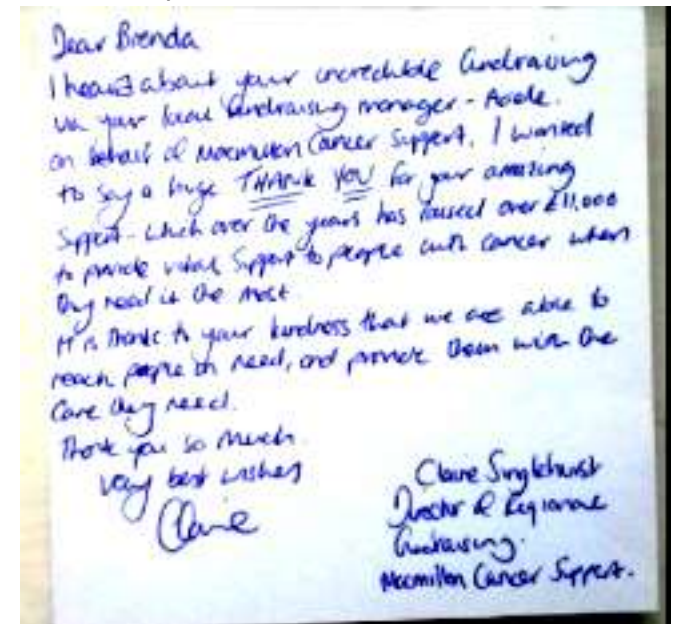 Dear Brenda
I heard about your incredible fundraising
via your local fundraising manager - Adele.
On behalf of Macmillan Cancer Support, I wanted
to say a huge THANK YOU for your amazing
support - which over the years has raised over £11,000
to provide vital support to people with cancer when
they need it the most.
It is thanks to your kindness that we are able to
reach people in need, and provide them with the
care they need.
Thank you so much.
Very best wishes
Claire
Claire Singlehurst
Director of Regional
Fundraising.
Macmillan Cancer Support.